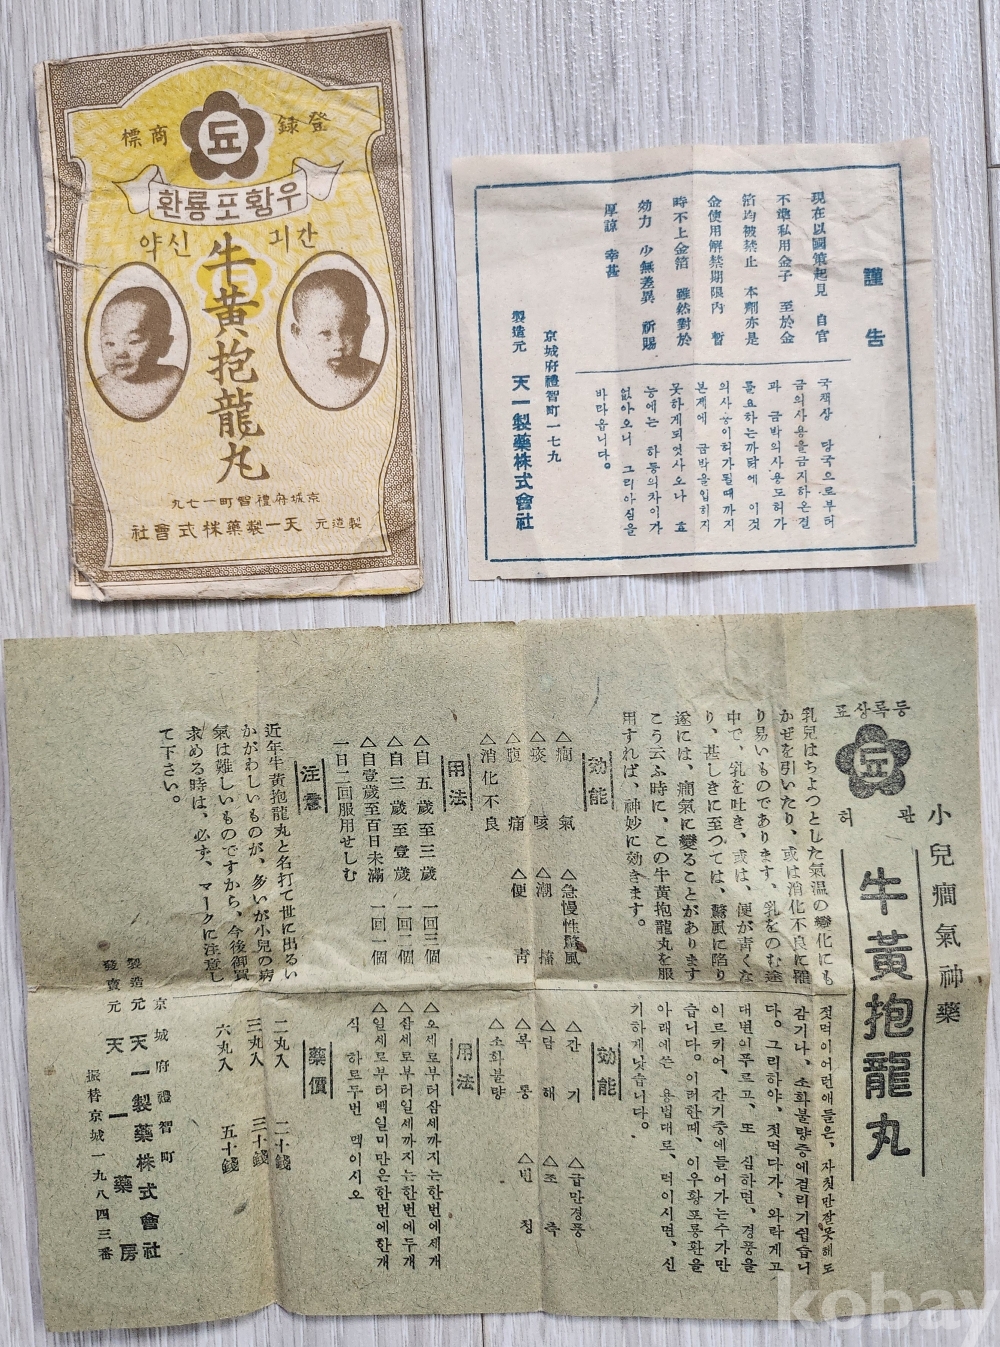 登録
商標
우황포룡환
간긔 신약
牛黄抱龍丸
京城府禮智町一七九
製造元 天一製藥株式會社
謹告
現在以國策起見 自官
不準私用金子 至於金
箔均被禁止 本劑亦是
金使用解禁期限內 暫
時不上金箔 雖然對於
効力 少無差異 祈賜
厚諒 幸甚
국책상 당국으로부터
금의사용을금지하온결
과 금박의사용도허가
를요하는까닭에 이것
의사용이허가될때까지
본제에 금박을입히지
못하게되엿사오나 효
능에는 하등의차이가
없아오니 그리아심을
바라옵니다。
京城府禮智町一七九
製造元 天一製藥株式會社
등록상표
관허
小兒癎氣神藥
牛黃抱龍丸
乳兒はちよつとした氣温の變化にも
かぜを引いたり、或は消化不良に罹
り易いものであります、乳をのむ途
中で、乳を吐き、或は、便が靑くな
り、甚しきに至つては、驚風に陷り
遂には、癎氣に變ることがあります
こう云ふ時に、この牛黃抱龍丸を服
用すれば、神妙に効きます。
効能
△癎氣 △急慢性驚風
△痰咳 △潮搐
△腹痛 △便靑
△消化不良
用法
△自五歲至三歲 一回三個
△自三歲至壹歲 一回二個
△自壹歲至百日未滿 一回一個
一日二回服用せしむ
注意
近年牛黃抱龍丸と名打て世に出るい
かがわしいものが、多いが小兒の病
氣は難しいものですから、今後御買
求める時は、必ず、マークに注意し
て下さい。
젓먹이어린애들은、자칫만잘못해도
감기나、소화불량증에걸리기쉽습니
다。그리하야、젓먹다가、와락게고
대변이푸르고、또 심하면、경풍을
이르키어、간기중에들어가는수가만
습니다。이러한때、이우황포룡환을
아래에쓴 용법대로、먹이시면、신
기하게낫습니다。
効能
△간기 △급만경풍
△담해 △조축
△복통 △변청
△소화불량
用法
△오세로부터삼세까지는한번에세개
△삼세로부터일세까지는한번에두개
△일세로부터백일미만은한번에한개
식 하로두번 멕이시오
藥價
二丸入 二十錢
三丸入 三十錢
六丸入 五十錢
京城府禮智町
製造元 天一製藥株式會社
發賣元 天一藥房
振替京城一九八四三番
kobay